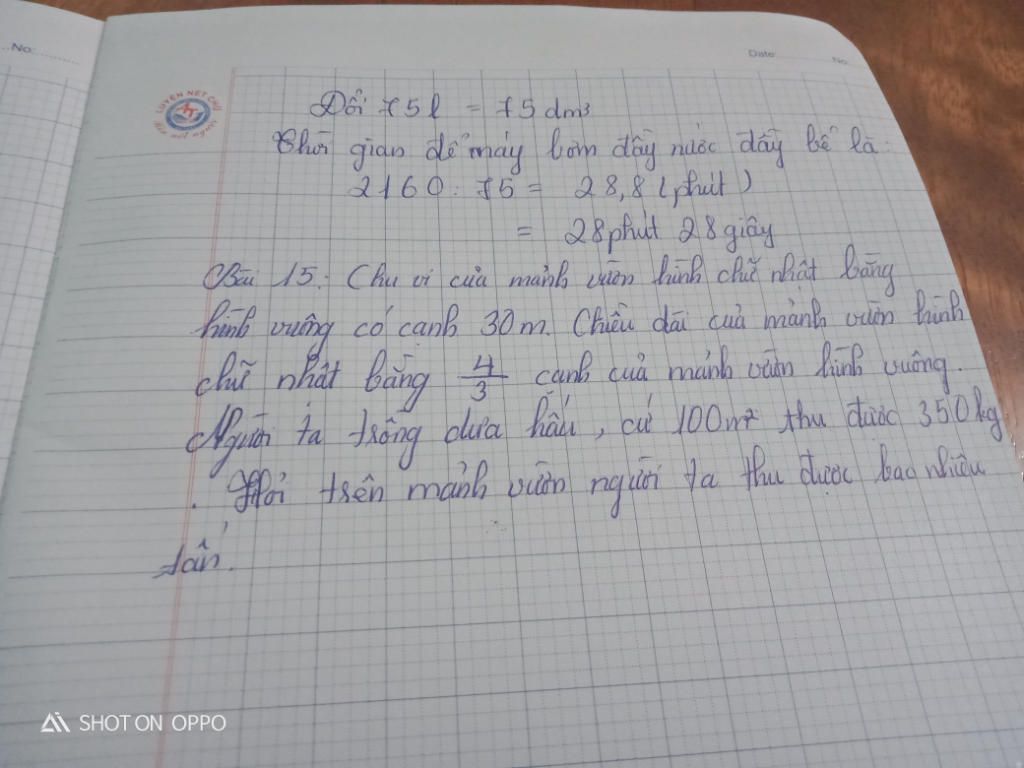 No:
Date:
No:
LUYỆN NÉT CHỮ
Rèn nết người
Đổi 75l = 75 dm³
Thời gian để máy bơm đầy nước đầy bể là:
2160 : 75 = 28,8 (phút)
= 28 phút 28 giây
Bài 15: Chu vi của mảnh vườn hình chữ nhật bằng
hình vuông có cạnh 30m. Chiều dài của mảnh vườn hình
chữ nhật bằng 4/3 cạnh của mảnh vườn hình vuông.
Người ta trồng dưa hấu, cứ 100m² thu được 350kg
. Hỏi trên mảnh vườn người ta thu được bao nhiêu
tấn.
SHOT ON OPPO